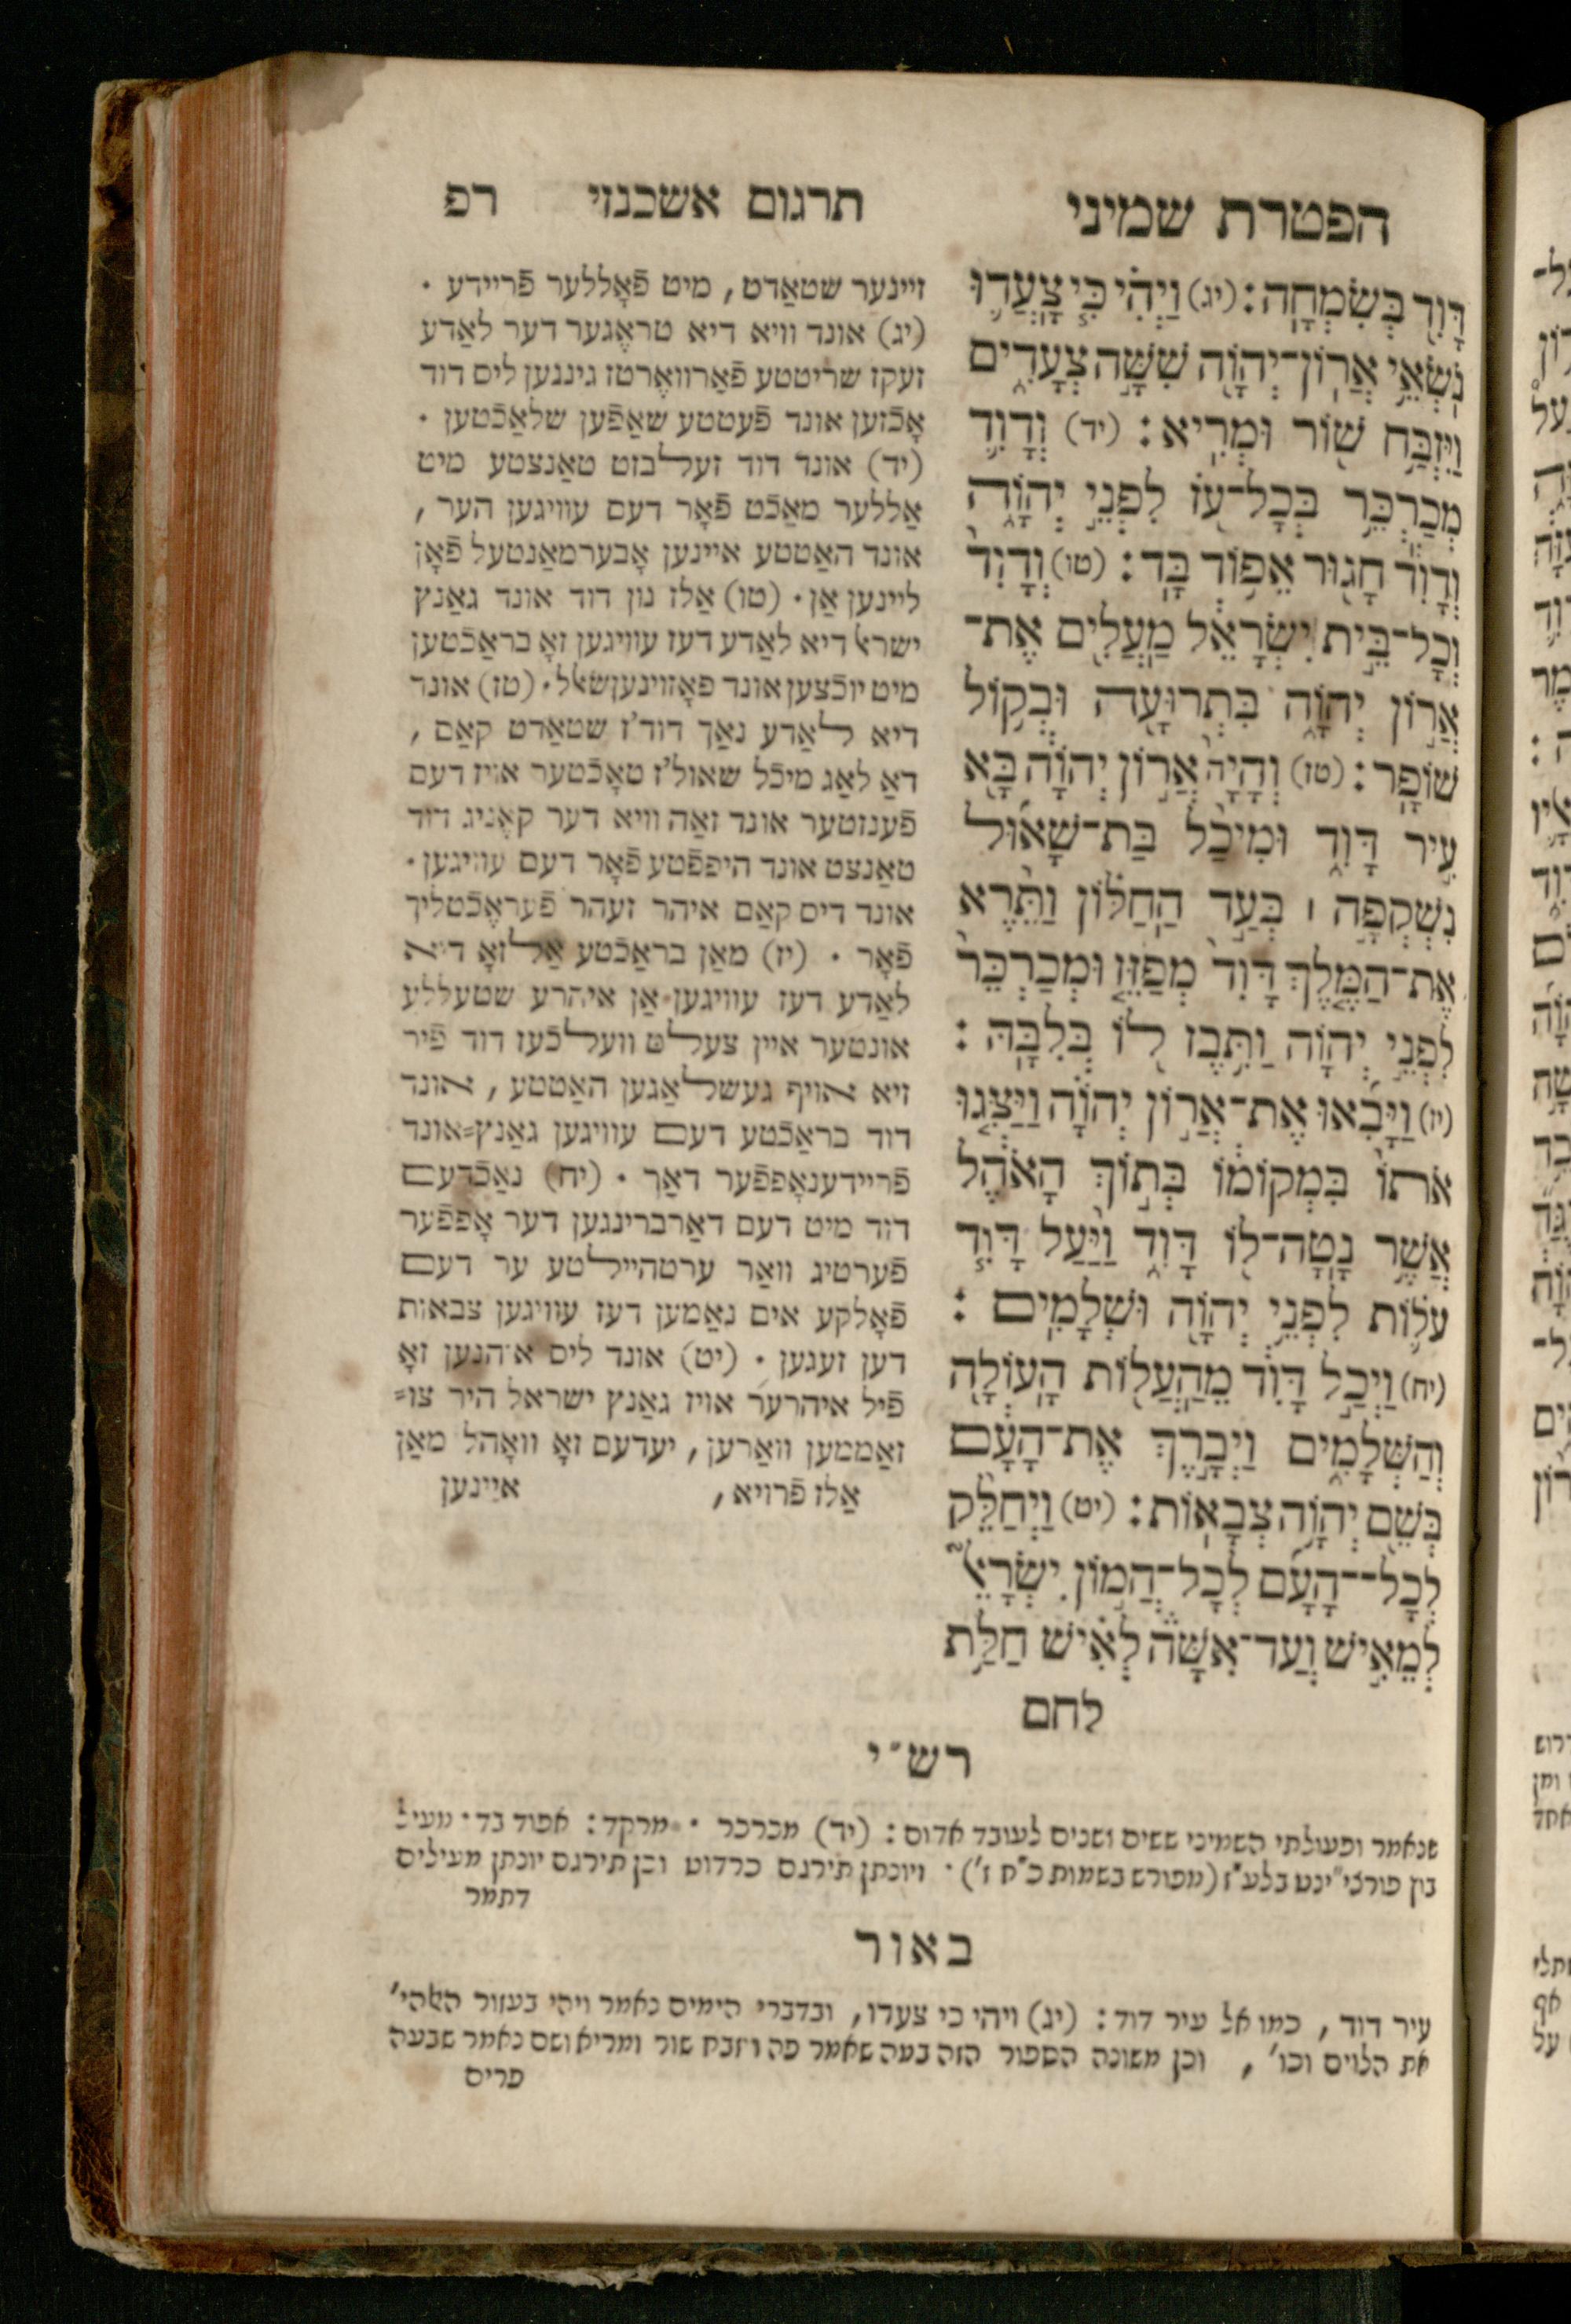 הפטרת שמיני
דָּוִ֖ד בְּשִׂמְחָֽה׃ (יג) וַיְהִ֗י כִּ֧י צָעֲד֛וּ
נֹשְׂאֵ֥י אֲרוֹן־יְהוָ֖ה שִׁשָּׁ֣ה צְעָדִ֑ים
וַיִּזְבַּ֥ח שׁ֖וֹר וּמְרִֽיא׃ (יד) וְדָוִ֛ד
מְכַרְכֵּ֥ר בְּכָל־עֹ֖ז לִפְנֵ֣י יְהוָ֑ה
וְדָוִ֕ד חָג֖וּר אֵפ֥וֹד בָּֽד׃ (טו) וְדָוִד֙
וְכָל־בֵּ֣ית יִשְׂרָאֵ֔ל מַעֲלִ֖ים אֶת־
אֲר֣וֹן יְהוָ֑ה בִּתְרוּעָ֖ה וּבְק֥וֹל
שׁוֹפָֽר׃ (טז) וְהָיָה֙ אֲר֣וֹן יְהוָ֔ה בָּ֖א
עִ֣יר דָּוִ֑ד וּמִיכַ֨ל בַּת־שָׁא֜וּל
נִשְׁקְפָ֣ה ׀ בְּעַ֣ד הַחַלּ֗וֹן וַתֵּ֨רֶא
אֶת־הַמֶּ֤לֶךְ דָּוִד֙ מְפַזֵּ֤ז וּמְכַרְכֵּר֙
לִפְנֵ֣י יְהוָ֔ה וַתִּ֥בֶז ל֖וֹ בְּלִבָּֽהּ׃
(יז) וַיָּבִ֜אוּ אֶת־אֲר֣וֹן יְהוָ֗ה וַיַּצִּ֤גוּ
אֹתוֹ֙ בִּמְקוֹמ֔וֹ בְּת֣וֹךְ הָאֹ֔הֶל
אֲשֶׁ֥ר נָטָה־ל֖וֹ דָּוִ֑ד וַיַּ֨עַל דָּוִ֥ד
עֹל֛וֹת לִפְנֵ֥י יְהוָ֖ה וּשְׁלָמִֽים׃
(יח) וַיְכַ֣ל דָּוִ֔ד מֵהַעֲל֥וֹת הָעוֹלָ֖ה
וְהַשְּׁלָמִ֑ים וַיְבָ֣רֶךְ אֶת־הָעָ֔ם
בְּשֵׁ֖ם יְהוָ֥ה צְבָאֽוֹת׃ (יט) וַיְחַלֵּ֨ק
לְכָל־־הָעָ֜ם לְכָל־הֲמ֣וֹן יִשְׂרָאֵ֗ל
לְמֵאִ֣ישׁ וְעַד־אִשָּׁה֮ לְאִישׁ֒ חַלַּ֥ת
לחם
תרגום אשכנזי רפ
זיינער שטאַדט, מיט פֿאָללער פֿריידע .
(יג) אונד וויא דיא טראָגער דער לאַדע
זעקז שריטטע פֿאָרווערטז גינגען ליס דוד
אָכֿזען אונד פֿעטטע שאַפֿען שלאַכֿטען .
(יד) אונד דוד זעלבזט טאַנצטע מיט
אַללער מאַכֿט פֿאָר דעם עוויגען הער,
אונד האַטטע איינען אָבערמאַנטעל פֿאָן
ליינען אַן. (טו) אַלז נון דוד אונד גאַנץ
ישראל דיא לאַדע דעז עוויגען זאָ בראַכֿטען
מיט יוכֿצען אונד פּאָזוינענשאַל. (טז) אונד
דיא לאַדע נאַך דוד'ז שטאַדט קאַם,
דאַ לאַג מיכֿל שאול'ז טאָכֿטער אויז דעם
פֿענזטער אונד זאַה וויא דער קאָניג דוד
טאַנצט אונד היפּפֿטע פֿאָר דעם עוויגען.
אונד דיס קאַם איהר זעהר פֿעראָכֿטליך
פֿאָר . (יז) מאַן בראַכֿטע אַלזאָ דיא
לאַדע דעז עוויגען אַן איהרע שטעללע
אונטער איין צעלט וועלכֿעז דוד פֿיר
זיא אויף געשלאַגען האַטטע, אונד
דוד בראַכֿטע דעם עוויגען גאַנץ=אונד
פֿריידענאָפּפֿער דאַר . (יח) נאַכֿדעם
דוד מיט דעם דאַרברינגען דער אָפּפֿער
פֿערטיג וואַר ערטהיילטע ער דעם
פֿאָלקע אים נאַמען דעז עוויגען צבאות
דען זעגען . (יט) אונד ליס איהנען זאָ
פֿיל איהרער אויז גאַנץ ישראל היר צו=
זאַממען וואַרען, יעדעם זאָ וואָהל מאַן
אַלז פֿרויא, איינען
רש״י
שנאמר ופעולתי השמיני ששים ושנים לעובד אדום: (יד) מכרכר . מרקד: אפוד בד. מעיל
בוץ פורצי״ינט בלע״ז (מפורש בשמות כ״ח ז'). ויונתן תירגם כרדוט וכן תירגם יונתן מעילים
דתמר
באור
עיר דוד, כמו אל עיר דוד: (יג) ויהי כי צעדו, ובדברי הימים נאמר ויהי בעזור האלהי'
את הלוים וכו', וכן משונה הספור הזה במה שאמר פה ויזבח שור ומריא ושם נאמר שבעה
פרים